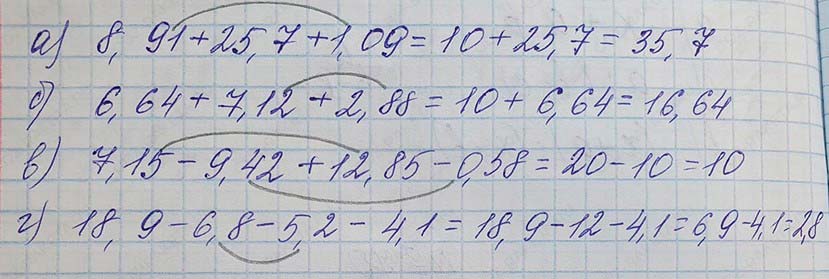 а) 8,91+25,7+1,09=10+25,7=35,7
б) 6,64+7,12+2,88=10+6,64=16,64
в) 7,15-9,42+12,85-0,58=20-10=10
г) 18,9-6,8-5,2-4,1=18,9-12-4,1=6,9-4,1=2,8